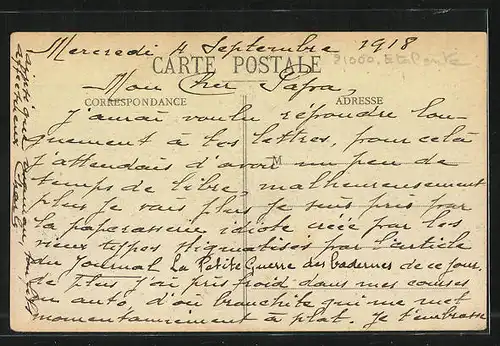 Mercredi 4 Septembre 1918
CARTE POSTALE
Mon Cher Papa,
CORRESPONDANCE
ADRESSE
J'aurai voulu répondre lon-
guement à tes lettres, pour cela
j'attendais d'avoir un peu de
M
temps de libre, malheureusement
plus je vais plus je suis pris par
la paperasserie idiote créée par les
vieux types stigmatisés par l'article
du Journal La Petite Guerre des badernes de ce jour.
De plus j'ai pris froid dans mes courses
en auto, d'où bronchite qui me met
momentanément à plat. Je t'embrasse